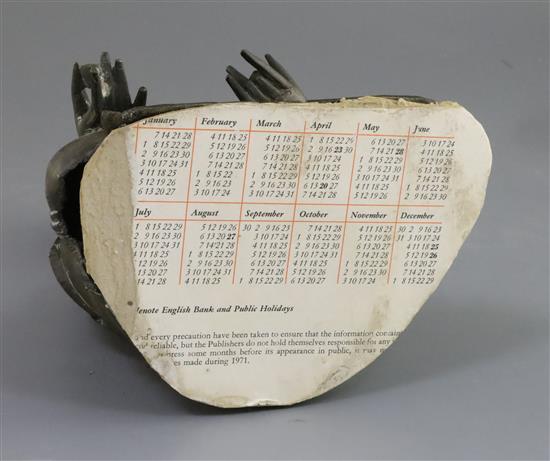 January February March April May June
7 14 21 28 4 11 18 25 4 11 18 25 1 8 15 22 29 6 13 20 27 3 10 17 24
1 8 15 22 29 5 12 19 26 5 12 19 26 2 9 16 23 30 7 14 21 28 4 11 18 25
2 9 16 23 30 6 13 20 27 6 13 20 27 3 10 17 24 1 8 15 22 29 5 12 19 26
3 10 17 24 31 7 14 21 28 7 14 21 28 4 11 18 25 2 9 16 23 30 6 13 20 27
4 11 18 25 1 8 15 22 1 8 15 22 29 5 12 19 26 3 10 17 24 31 7 14 21 28
5 12 19 26 2 9 16 23 2 9 16 23 30 6 13 20 27 4 11 18 25 1 8 15 22 29
6 13 20 27 3 10 17 24 3 10 17 24 31 7 14 21 28 5 12 19 26 2 9 16 23 30
July August September October November December
1 8 15 22 29 5 12 19 26 30 2 9 16 23 7 14 21 28 4 11 18 25 30 2 9 16 23
2 9 16 23 30 6 13 20 27 3 10 17 24 1 8 15 22 29 5 12 19 26 31 3 10 17 24
3 10 17 24 31 7 14 21 28 4 11 18 25 2 9 16 23 30 6 13 20 27 4 11 18 25
4 11 18 25 1 8 15 22 29 5 12 19 26 3 10 17 24 31 7 14 21 28 5 12 19 26
12 19 26 2 9 16 23 30 6 13 20 27 4 11 18 25 1 8 15 22 29 6 13 20 27
13 20 27 3 10 17 24 31 7 14 21 28 5 12 19 26 2 9 16 23 30 7 14 21 28
14 21 28 4 11 18 25 1 8 15 22 29 6 13 20 27 3 10 17 24 1 8 15 22 29
denote English Bank and Public Holidays
and every precaution have been taken to ensure that the information
reliable, but the Publishers do not hold themselves responsible for any
some months before its appearance in public, it
made during 1971.